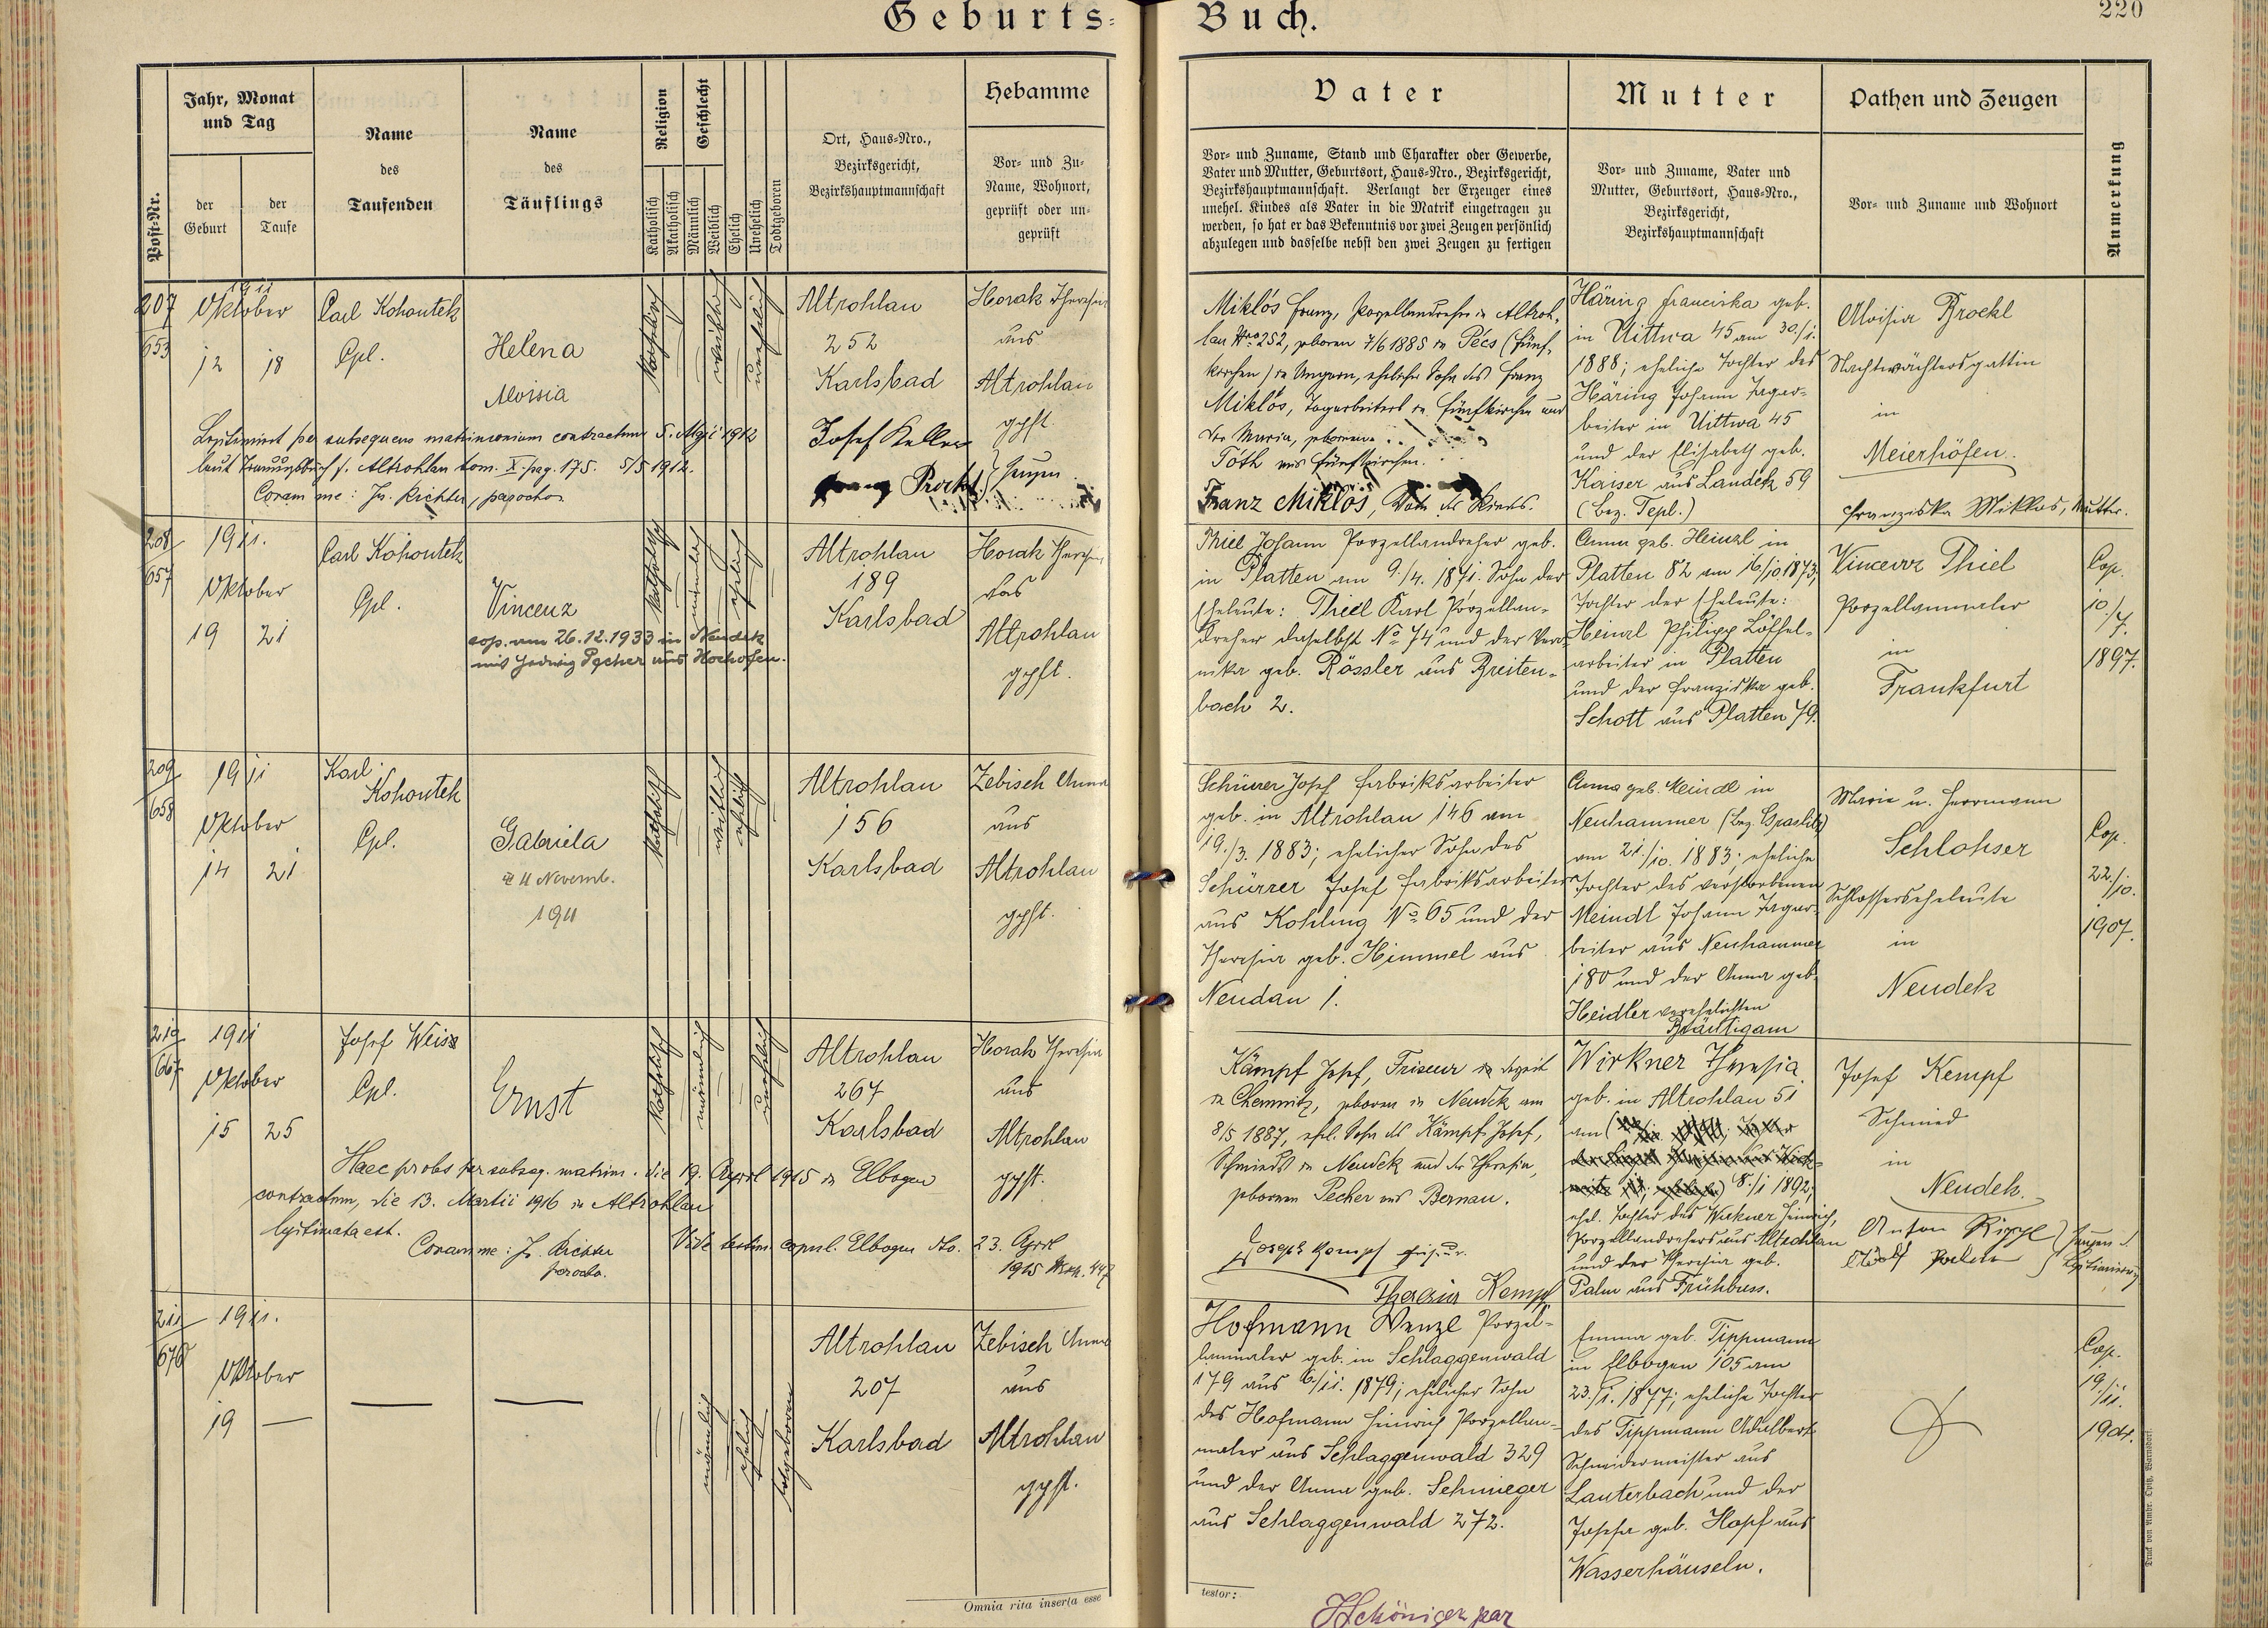 Geburts-Buch.
220
Post-Nr.
Jahr, Monat
und Tag
der
Geburt
der
Taufe
Name
des
Taufenden
Name
des
Täuflings
Religion
Katholisch
Akatholisch
Geschlecht
Männlich
Weiblich
Ehelich
Unehelich
Todtgeboren
Ort, Haus-Nro.,
Bezirksgericht,
Bezirkshauptmannschaft
Hebamme
Vor- und Zu-
Name, Wohnort,
geprüft oder un-
geprüft
Vater
Vor- und Zuname, Stand und Charakter oder Gewerbe,
Vater und Mutter, Geburtsort, Haus-Nro., Bezirksgericht,
Bezirkshauptmannschaft. Verlangt der Erzeuger eines
unehel. Kindes als Vater in die Matrik eingetragen zu
werden, so hat er das Bekenntnis vor zwei Zeugen persönlich
abzulegen und dasselbe nebst den zwei Zeugen zu fertigen
Mutter
Vor- und Zuname, Vater und
Mutter, Geburtsort, Haus-Nro.,
Bezirksgericht,
Bezirkshauptmannschaft
Pathen und Zeugen
Vor- und Zuname und Wohnort
Anmerkung
207
653
1911
Oktober
12 18
Carl Kohoutek
Cpl.
Helena
Aloisia
katholisch
weiblich
unehelich
Altrohlau
252
Karlsbad
Horak Theresia
aus
Altrohlau
gpft.
Legitimirt per subsequens matrimonium contractum 5. Maji 1912
laut Trauungsbuch f. Altrohlau tom. X. pag. 175. 5/5 1912.
Coram me: Jos. Richter, parocho
Josef Keller
Franz Prockl } Zeugen
Miklós Franz, Porzellandreher in Altroh-
lau Nro 252, geboren 7/6 1885 in Pécs (Fünf-
kirchen) in Ungarn, ehelicher Sohn des Franz
Miklós, Tagarbeiters in Fünfkirchen und
der Maria, geborenen
Tóth aus Fünfkirchen.
Franz Miklós, Vater des Kindes.
Häring Franciska geb.
in Uittwa 45 am 30./1.
1888; eheliche Tochter des
Häring Johann Tagar-
beiter in Uittwa 45
und der Elisabeth geb.
Kaiser aus Landek 59
(Bez. Tepl.)
Aloisia Prockl
Nachtwächtersgattin
in
Meierhöfen.
Franziska Miklos, Mutter.
208
657
1911.
Oktober
19 21
Carl Kohoutek
Cpl.
Vincenz
cop. am 26.12.1933 in Neudek
mit Hedwig Pecher aus Hochofen.
katholisch
männlich
ehelich
Altrohlau
189
Karlsbad
Horak Theresia
aus
Altrohlau
gpft.
Thiel Johann Porzellandreher geb.
in Platten am 9./4. 1871. Sohn der
Eheleute: Thiel Karl Porzellan-
dreher daselbst No 74 und der Vero-
nika geb. Rössler aus Breiten-
bach 2.
Anna geb. Heinzl in
Platten 82 am 16/10 1873,
Tochter der Eheleute:
Heinzl Philipp Löffel-
arbeiter in Platten
und der Franziska geb.
Schott aus Platten 79.
Vincenz Thiel
Porzellanmaler
in
Frankfurt
Cop.
10/7.
1897.
209
658
1911
Oktober
14 21
Karl
Kohoutek
Cpl.
Gabriela
4 Novemb.
1911
katholisch
weiblich
ehelich
Altrohlau
156
Karlsbad
Zebisch Anna
aus
Altrohlau
gpft.
Schürer Josef Fabriksarbeiter
geb. in Altrohlau 146 am
19./3. 1883; ehelicher Sohn des
Schürrer Josef Fabriksarbeiter
aus Kohling No 65 und der
Theresia geb. Himmel aus
Neudau 1.
Anna geb. Meindl in
Neuhammer (Bez. Graslitz)
am 21./10. 1883; eheliche
Tochter des verstorbenen
Meindl Johann Tagar-
beiter aus Neuhammer
180 und der Anna geb.
Heidler verehelichten
Bräutigam
Marie u. Herrmann
Schlohser
Schlosserseheleute
in
Neudek
Cop.
22./10.
1907.
210
667
1911
Oktober
15 25
Josef Weiss
Cpl.
Ernst
katholisch
männlich
unehelich
Altrohlau
267
Karlsbad
Horak Theresia
aus
Altrohlau
gpft.
Haec proles per subseq. matrim. die 19. April 1915 in Elbogen
contractum, die 13. Martii 1916 in Altrohlau
legitimata est.
Coram me: Jos. Richter
parocho.
Vide testim. copul. Elbogen dto. 23. April
1915 447
Kämpf Josef, Friseur derzeit
in Chemnitz, geboren in Neudek am
8/5 1887, ehel. Sohn des Kämpf Josef,
Schmieds in Neudek und der Theresia,
geborenen Pecher aus Bernau.
Joseph Kempf Friseur.
Theresia Kempf
Wirkner Theresia
geb. in Altrohlau 51
am
8./1 1892;
ehel. Tochter des Wirkner Heinrich,
Porzellandrehers aus Altrohlau
und der Theresia geb.
Palm aus Frühbuss.
Josef Kempf
Schmied
in
Neudek.
Anton
Zeugen d.
Legitimirung
211
676
1911.
Oktober
19 —
— —
männlich
ehelich
todtgeboren
Altrohlau
207
Karlsbad
Zebisch Anna
aus
Altrohlau
gpft.
Hofmann Wenzl Porzel-
lanmaler geb. in Schlaggenwald
179 aus 6/11. 1879; ehelicher Sohn
des Hofmann Heinrich Porzellan-
maler aus Schlaggenwald 329
und der Anna geb. Schmieger
aus Schlaggenwald 272.
Emma geb. Tippmann
in Elbogen 105 am
23./1. 1877; eheliche Tochter
des Tippmann Adalbert
Schneidermeister aus
Lauterbach und der
Josefa geb. Hopf aus
Wasserhäuseln.
Cop.
19/11.
1904.
Omnia rita inserta esse
testor:
Schöniger par
Druck von Ambr. Opitz, Warnsdorf.